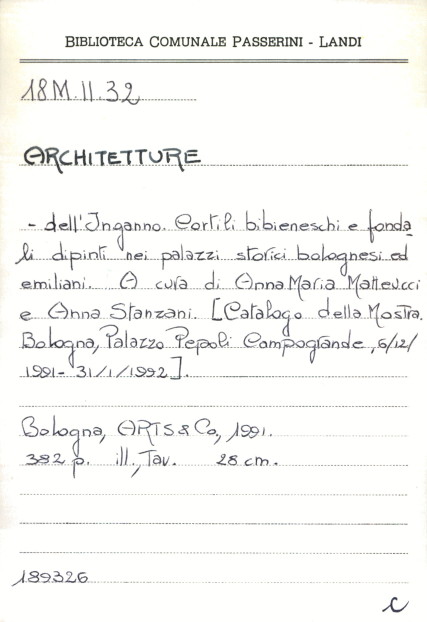 BIBLIOTECA COMUNALE PASSERINI - LANDI
18M.II.32
ARCHITETTURE
- dell'Inganno. Cortili bibieneschi e fonda
li dipinti nei palazzi storici bolognesi ed
emiliani. A cura di Anna Maria Matteucci
e Anna Stanzani. [Catalogo della Mostra.
Bologna, Palazzo Pepoli Campogrande, 6/12/
1991 - 31/1/1992].
Bologna, ARTS & Co, 1991.
382 p. ill., Tav. 28 cm.
189326
C